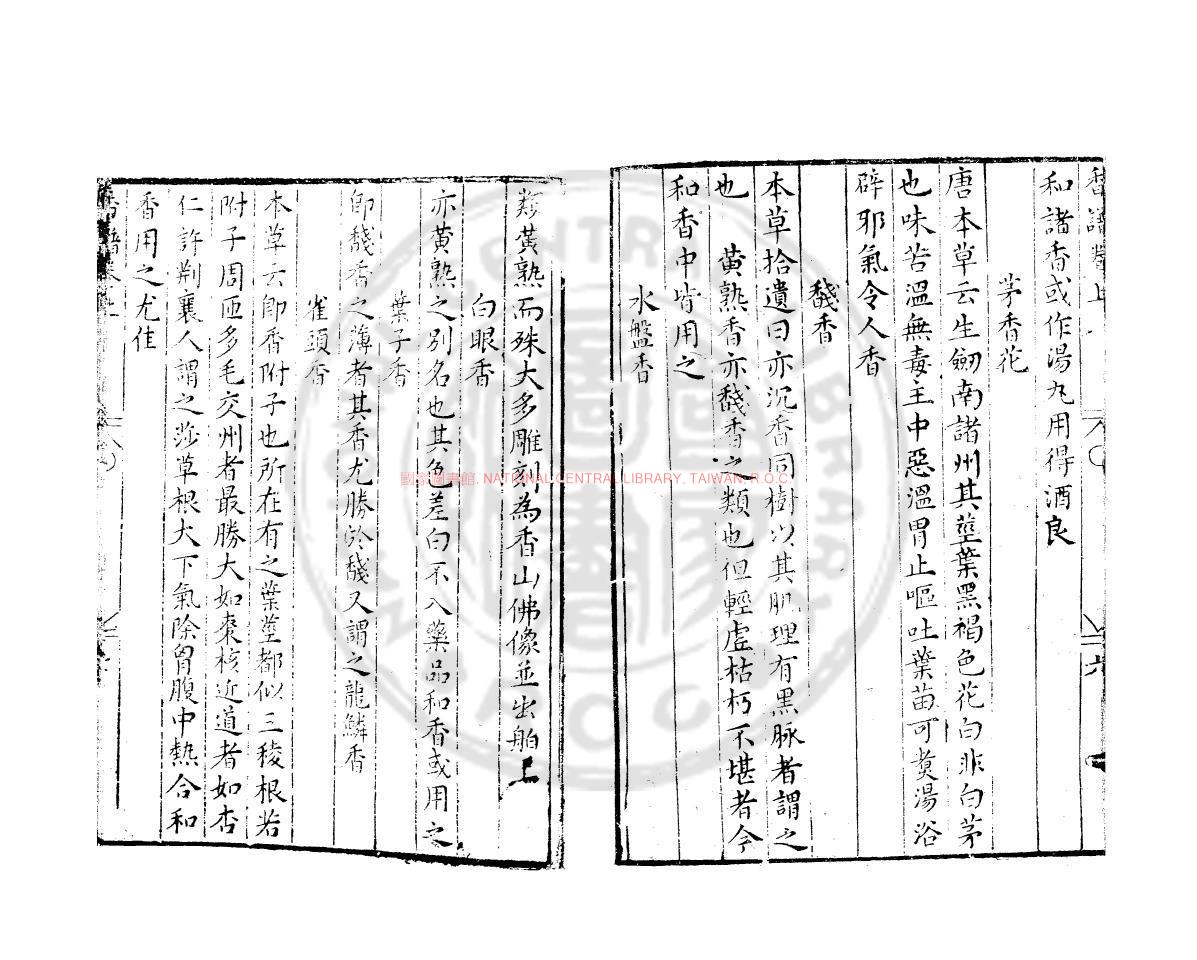 香譜卷上
六
和諸香或作湯丸用得酒良
茅香花
唐本草云生劒南諸州其莖葉黑褐色花白非白茅
也味苦溫無毒主中惡溫胃止嘔吐葉苗可煑湯浴
辟邪氣令人香
馢香
本草拾遺曰亦沉香同樹以其肌理有黑脉者謂之
也　黄熟香亦馢香之類也但輕虛枯朽不堪者今
和香中皆用之
水盤香
類黄熟而殊大多雕刻為香山佛像並出舶上
白眼香
亦黄熟之別名也其色差白不入藥品和香或用之
葉子香
即馢香之薄者其香尤勝於馢又謂之龍鱗香
雀頭香
本草云即香附子也所在有之葉莖都似三稜根若
附子周匝多毛交州者最勝大如棗核近道者如杏
仁許荆襄人謂之莎草根大下氣除胷腹中熱合和
香用之尤佳
香譜卷上
國家圖書館. NATIONAL CENTRAL LIBRARY. TAIWAN. R.O.C.